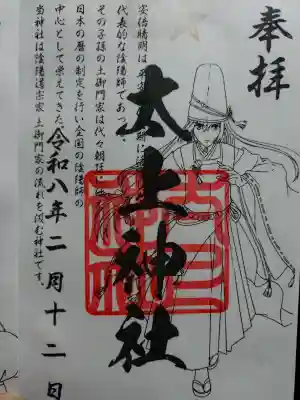 奉拝
安倍晴明は平安
代表的な陰陽師であっ
その子孫の土御門家は代々朝廷
日本の暦の制定を行い全国の陰陽師の
中心として栄えてきた
当神社は陰陽道宗家土御門家の流れを汲む神社です。
太土神社
令和八年二月十二日